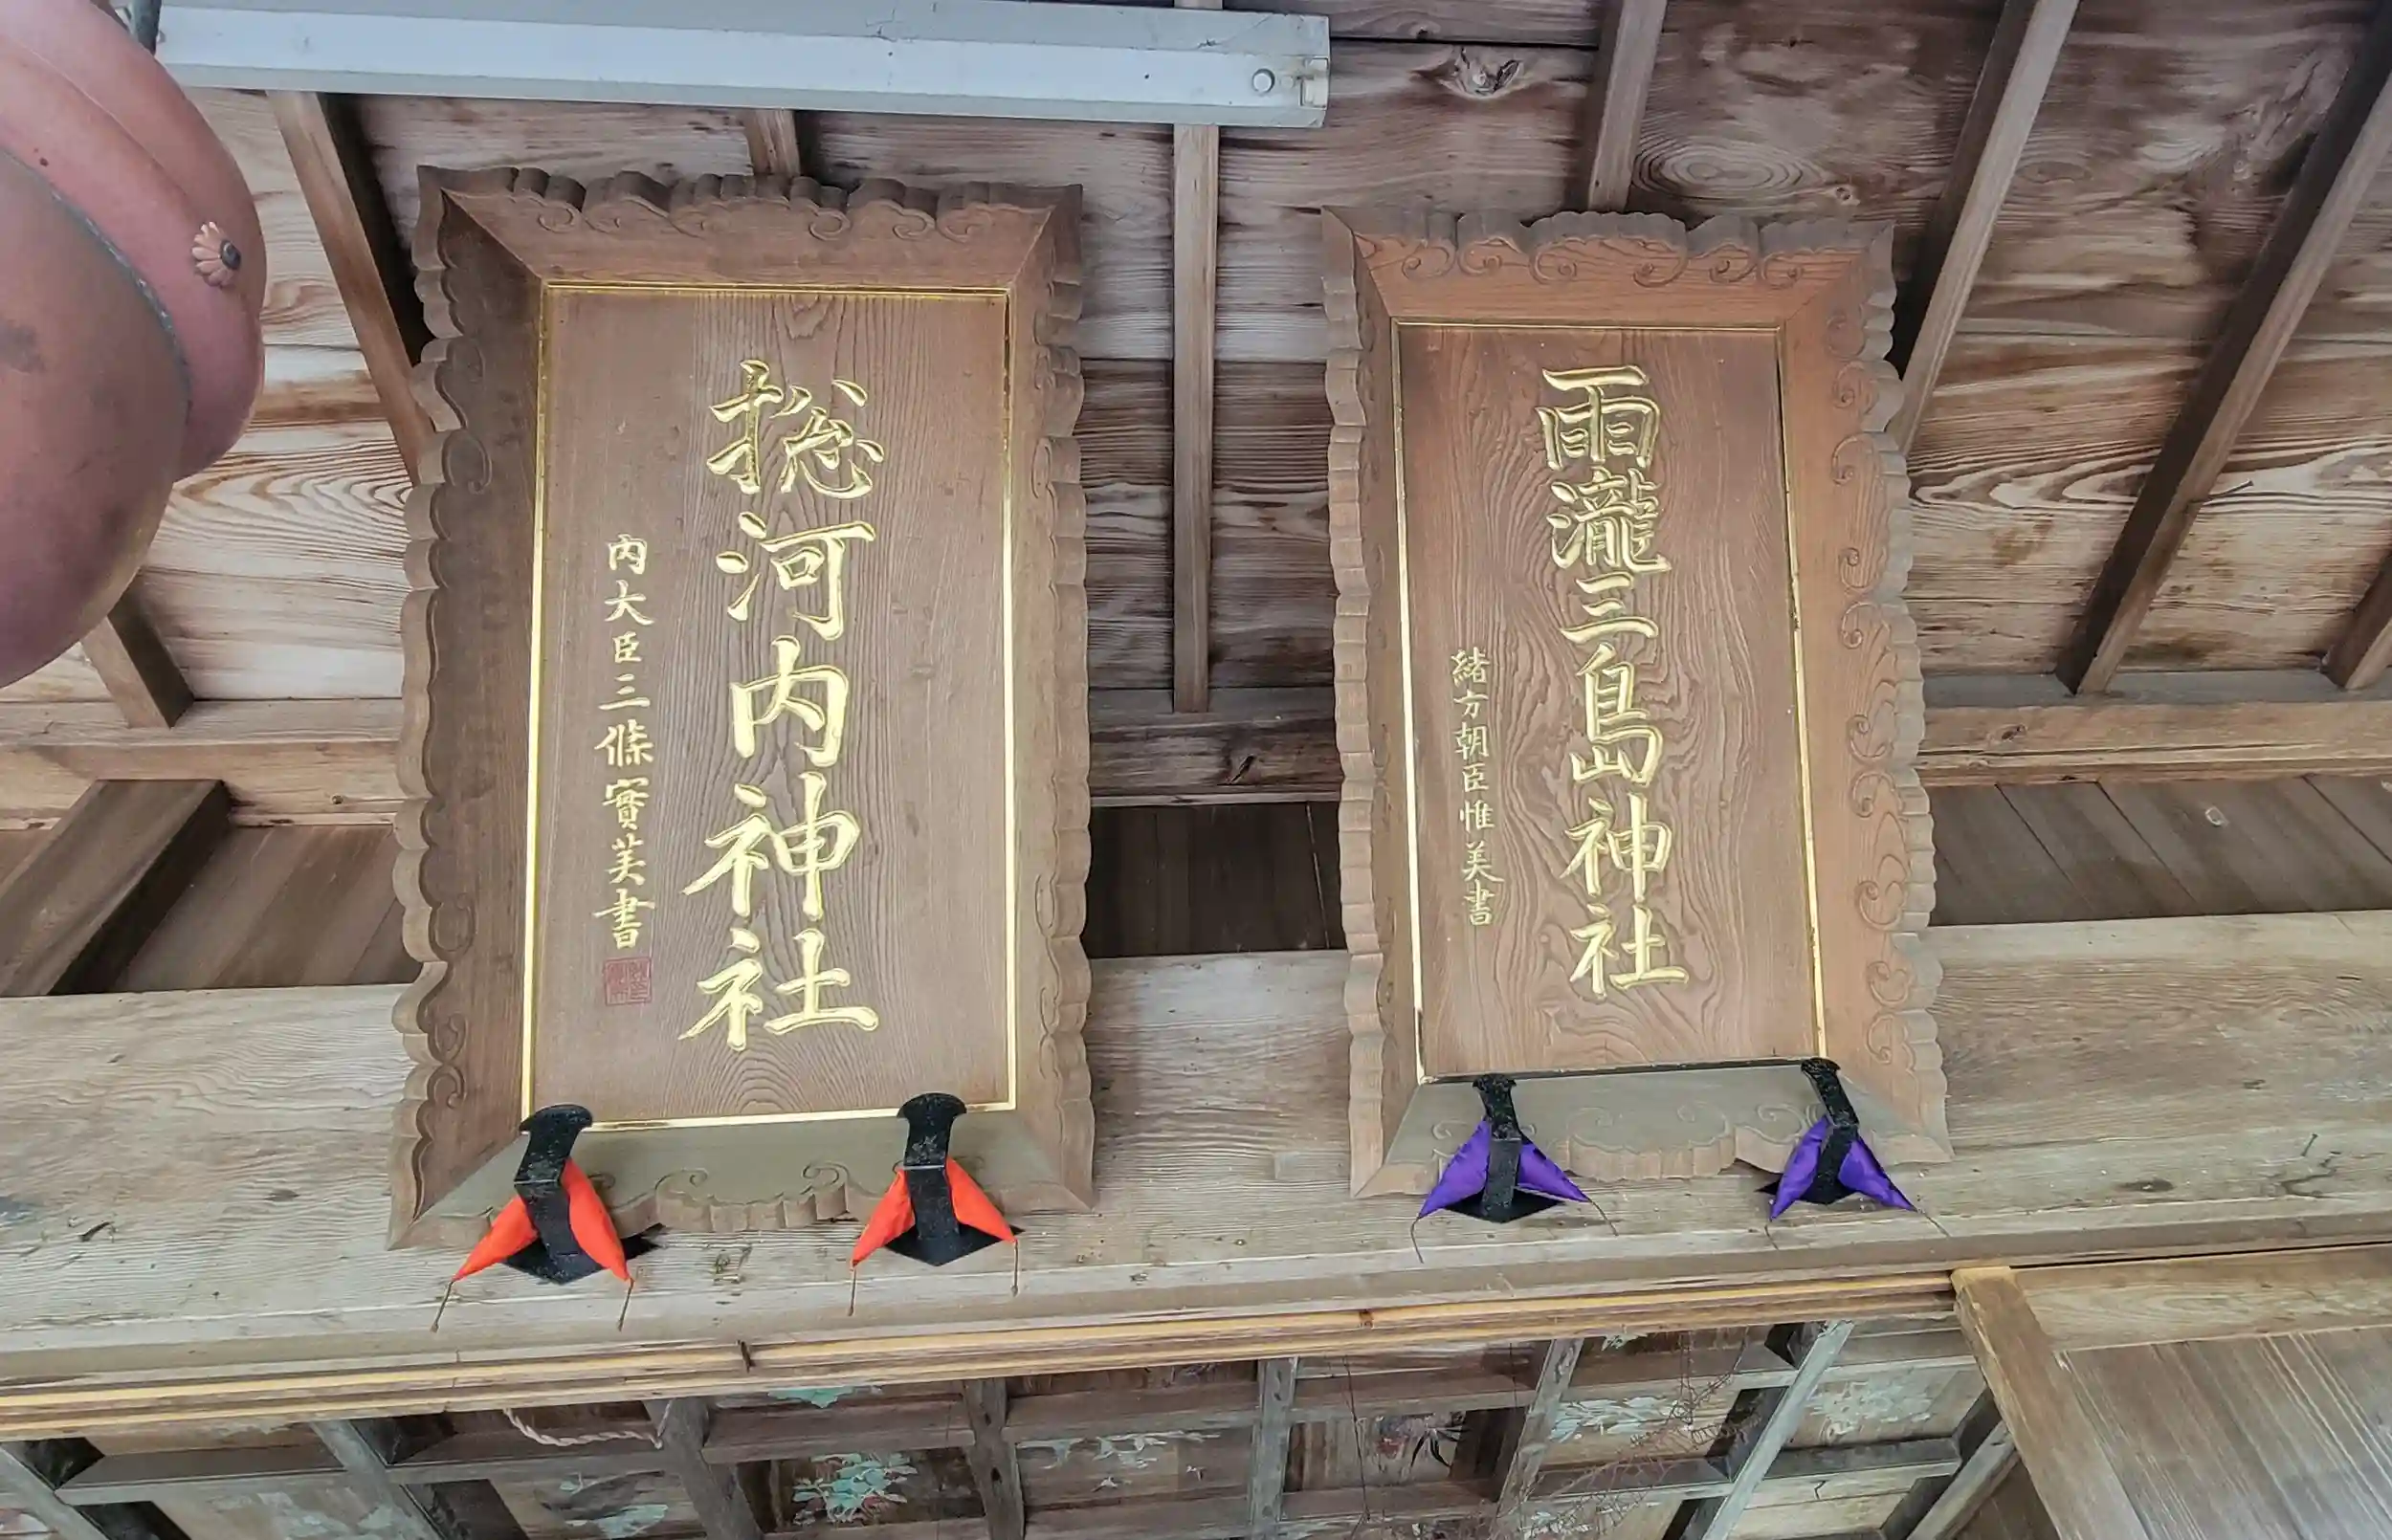 雨瀧三島神社
緒方朝臣惟美書
揔河内神社
内大臣三條實美書